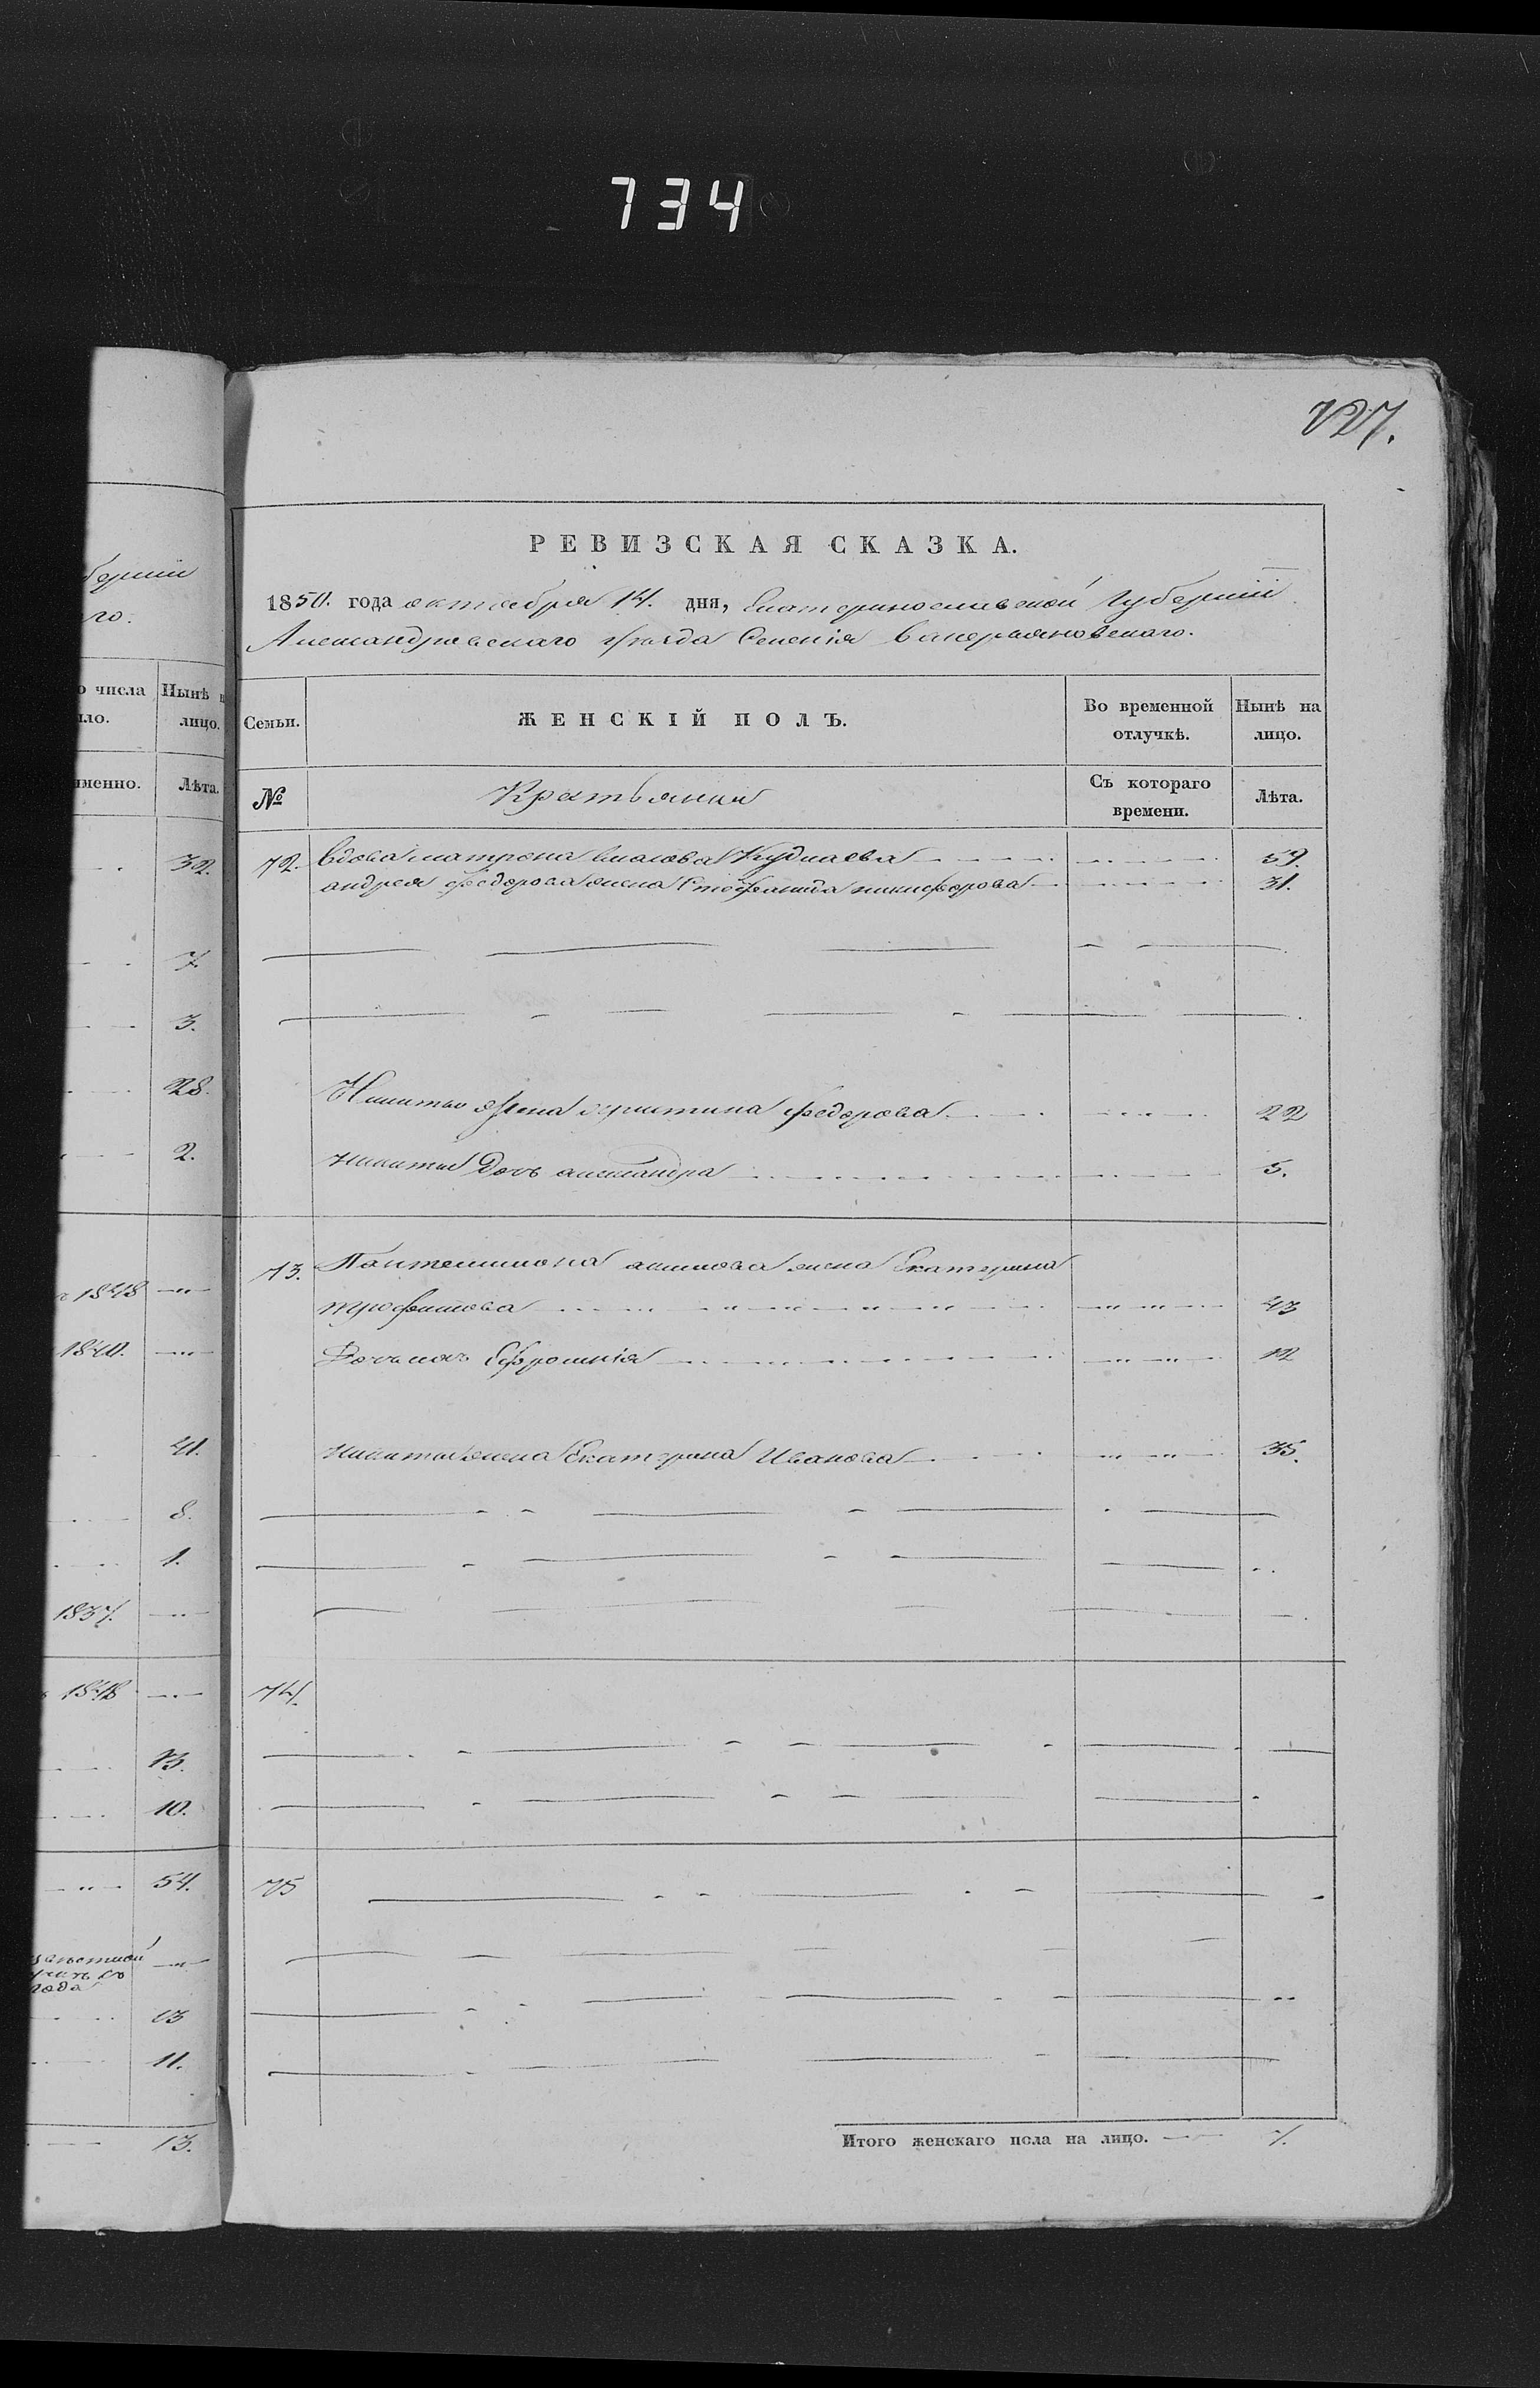 734
727.
беріи
го.
РЕВИЗСКАЯ СКАЗКА.
1850. года октября 14. дня, Екатеринославской Губерніи
Александровскаго уѣзда Селенія Валерьяновскаго.
о числа
ло.
Нынѣ н
лицо.
именно.
Лѣта.
Семьи.
ЖЕНСКІЙ ПОЛЪ.
Во временной
отлучкѣ.
Нынѣ на
лицо.
№
Крестьянки
Съ котораго
времени.
Лѣта.
32.
7.
3.
28.
2.
1848
1840.
41.
8.
1.
1837.
1848
13.
10.
54.
года
13
11.
13.
72. Вдова матрона власова 59.
андрея федорова жена Стефанида никифорова 31.
Никиты жена христина федорова 22
никиты Дочь александра 5.
73. Пантелимона акимова жена Екатерина
трофимова 43
Дочь ихъ Ефросинія 12
никиты жена Екатерина Иванова 35.
74.
75
Итого женскаго пола на лицо. 7.